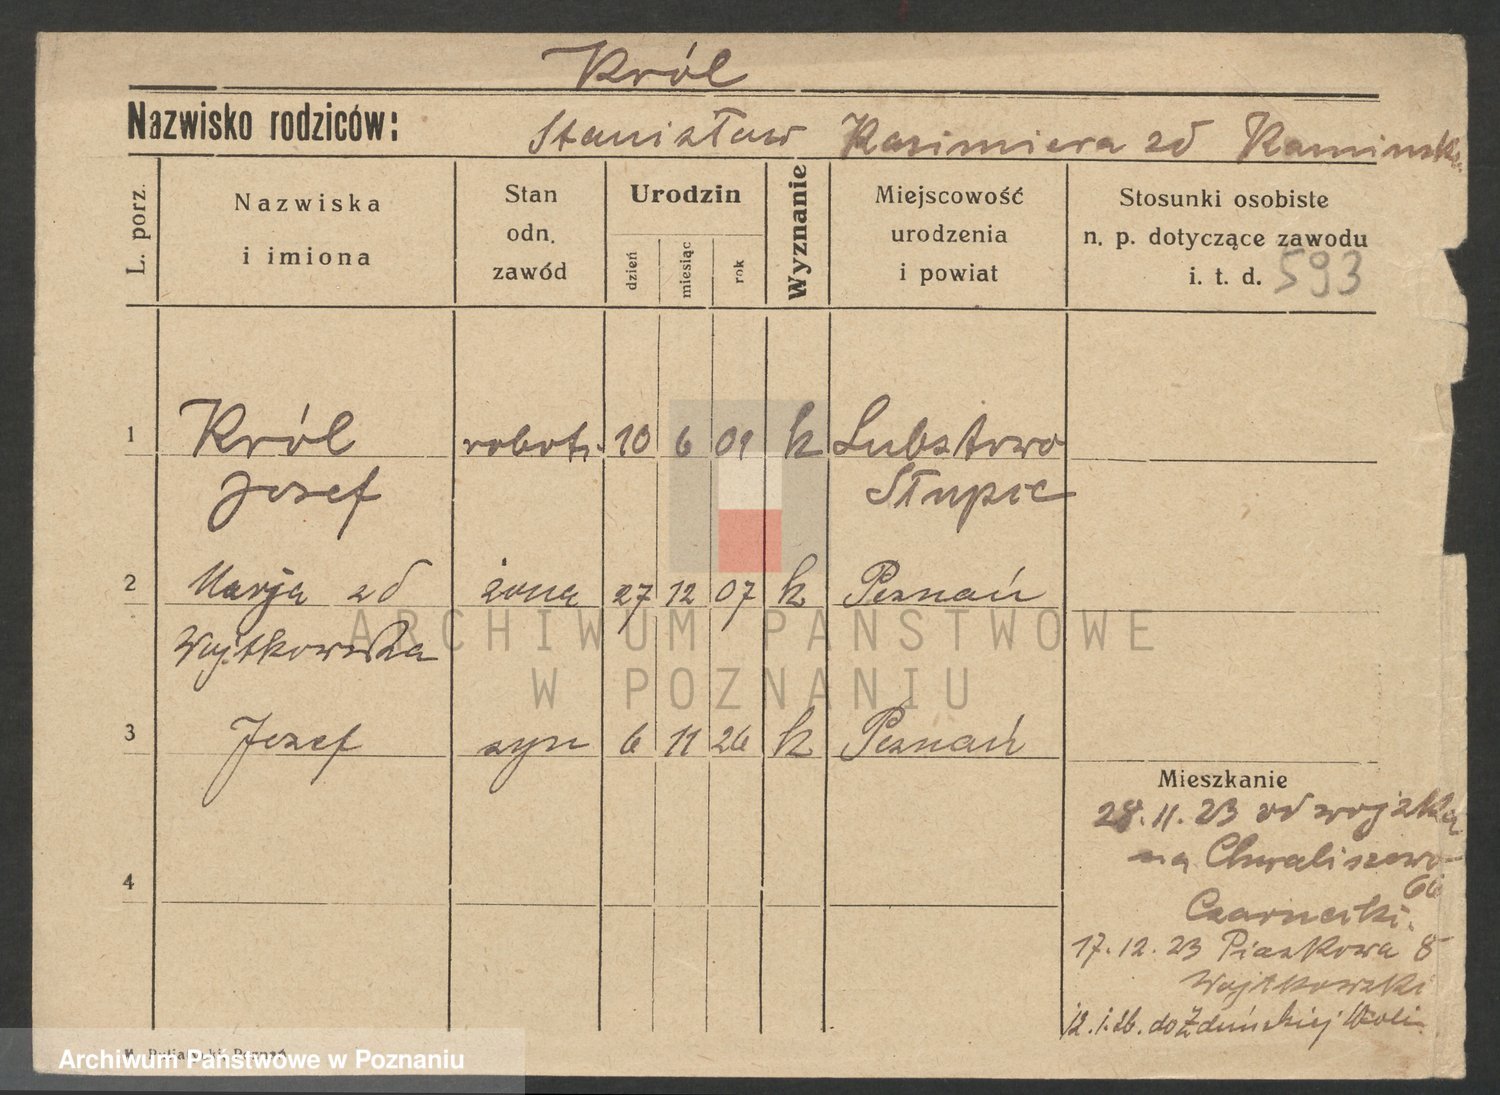 Król
Nazwisko rodziców: Stanisław Kazimiera zd Kaminska
L. porz.
Nazwiska
i imiona
Stan
odn.
zawód
Urodzin
dzień
miesiąc
rok
Wyznanie
Miejscowość
urodzenia
i powiat
Stosunki osobiste
n. p. dotyczące zawodu
i. t. d. 593
1 Król robotn. 10 6 01 k Lubstowo
Jozef Słupic
2 Marja zd żona 27 12 07 k Poznań
Wojtkowska
3 Jozef syn 6 11 26 k Poznań
4
Mieszkanie
28.11.23 od wojska
na Chwaliszewo
Czarnecki.
17.12.23 Piaskowa 8
Wojtkowski
12.1.26. do Zduńskiej Woli
ARCHIWUM PAŃSTWOWE
W POZNANIU
Archiwum Państwowe w Poznaniu